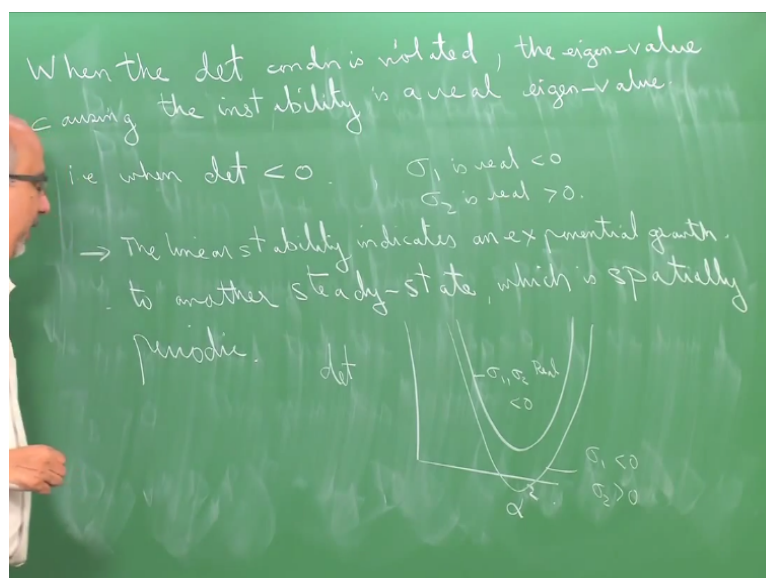 When the det condn is violated, the eigen-value
causing the instability is a real eigen-value.
i.e when det < 0. σ₁ is real < 0
σ₂ is real > 0.
→ The linear stability indicates an exponential growth.
to another steady-state, which is spatially
periodic.
det
σ₁, σ₂ Real
< 0
σ₁ < 0
σ₂ > 0
α²